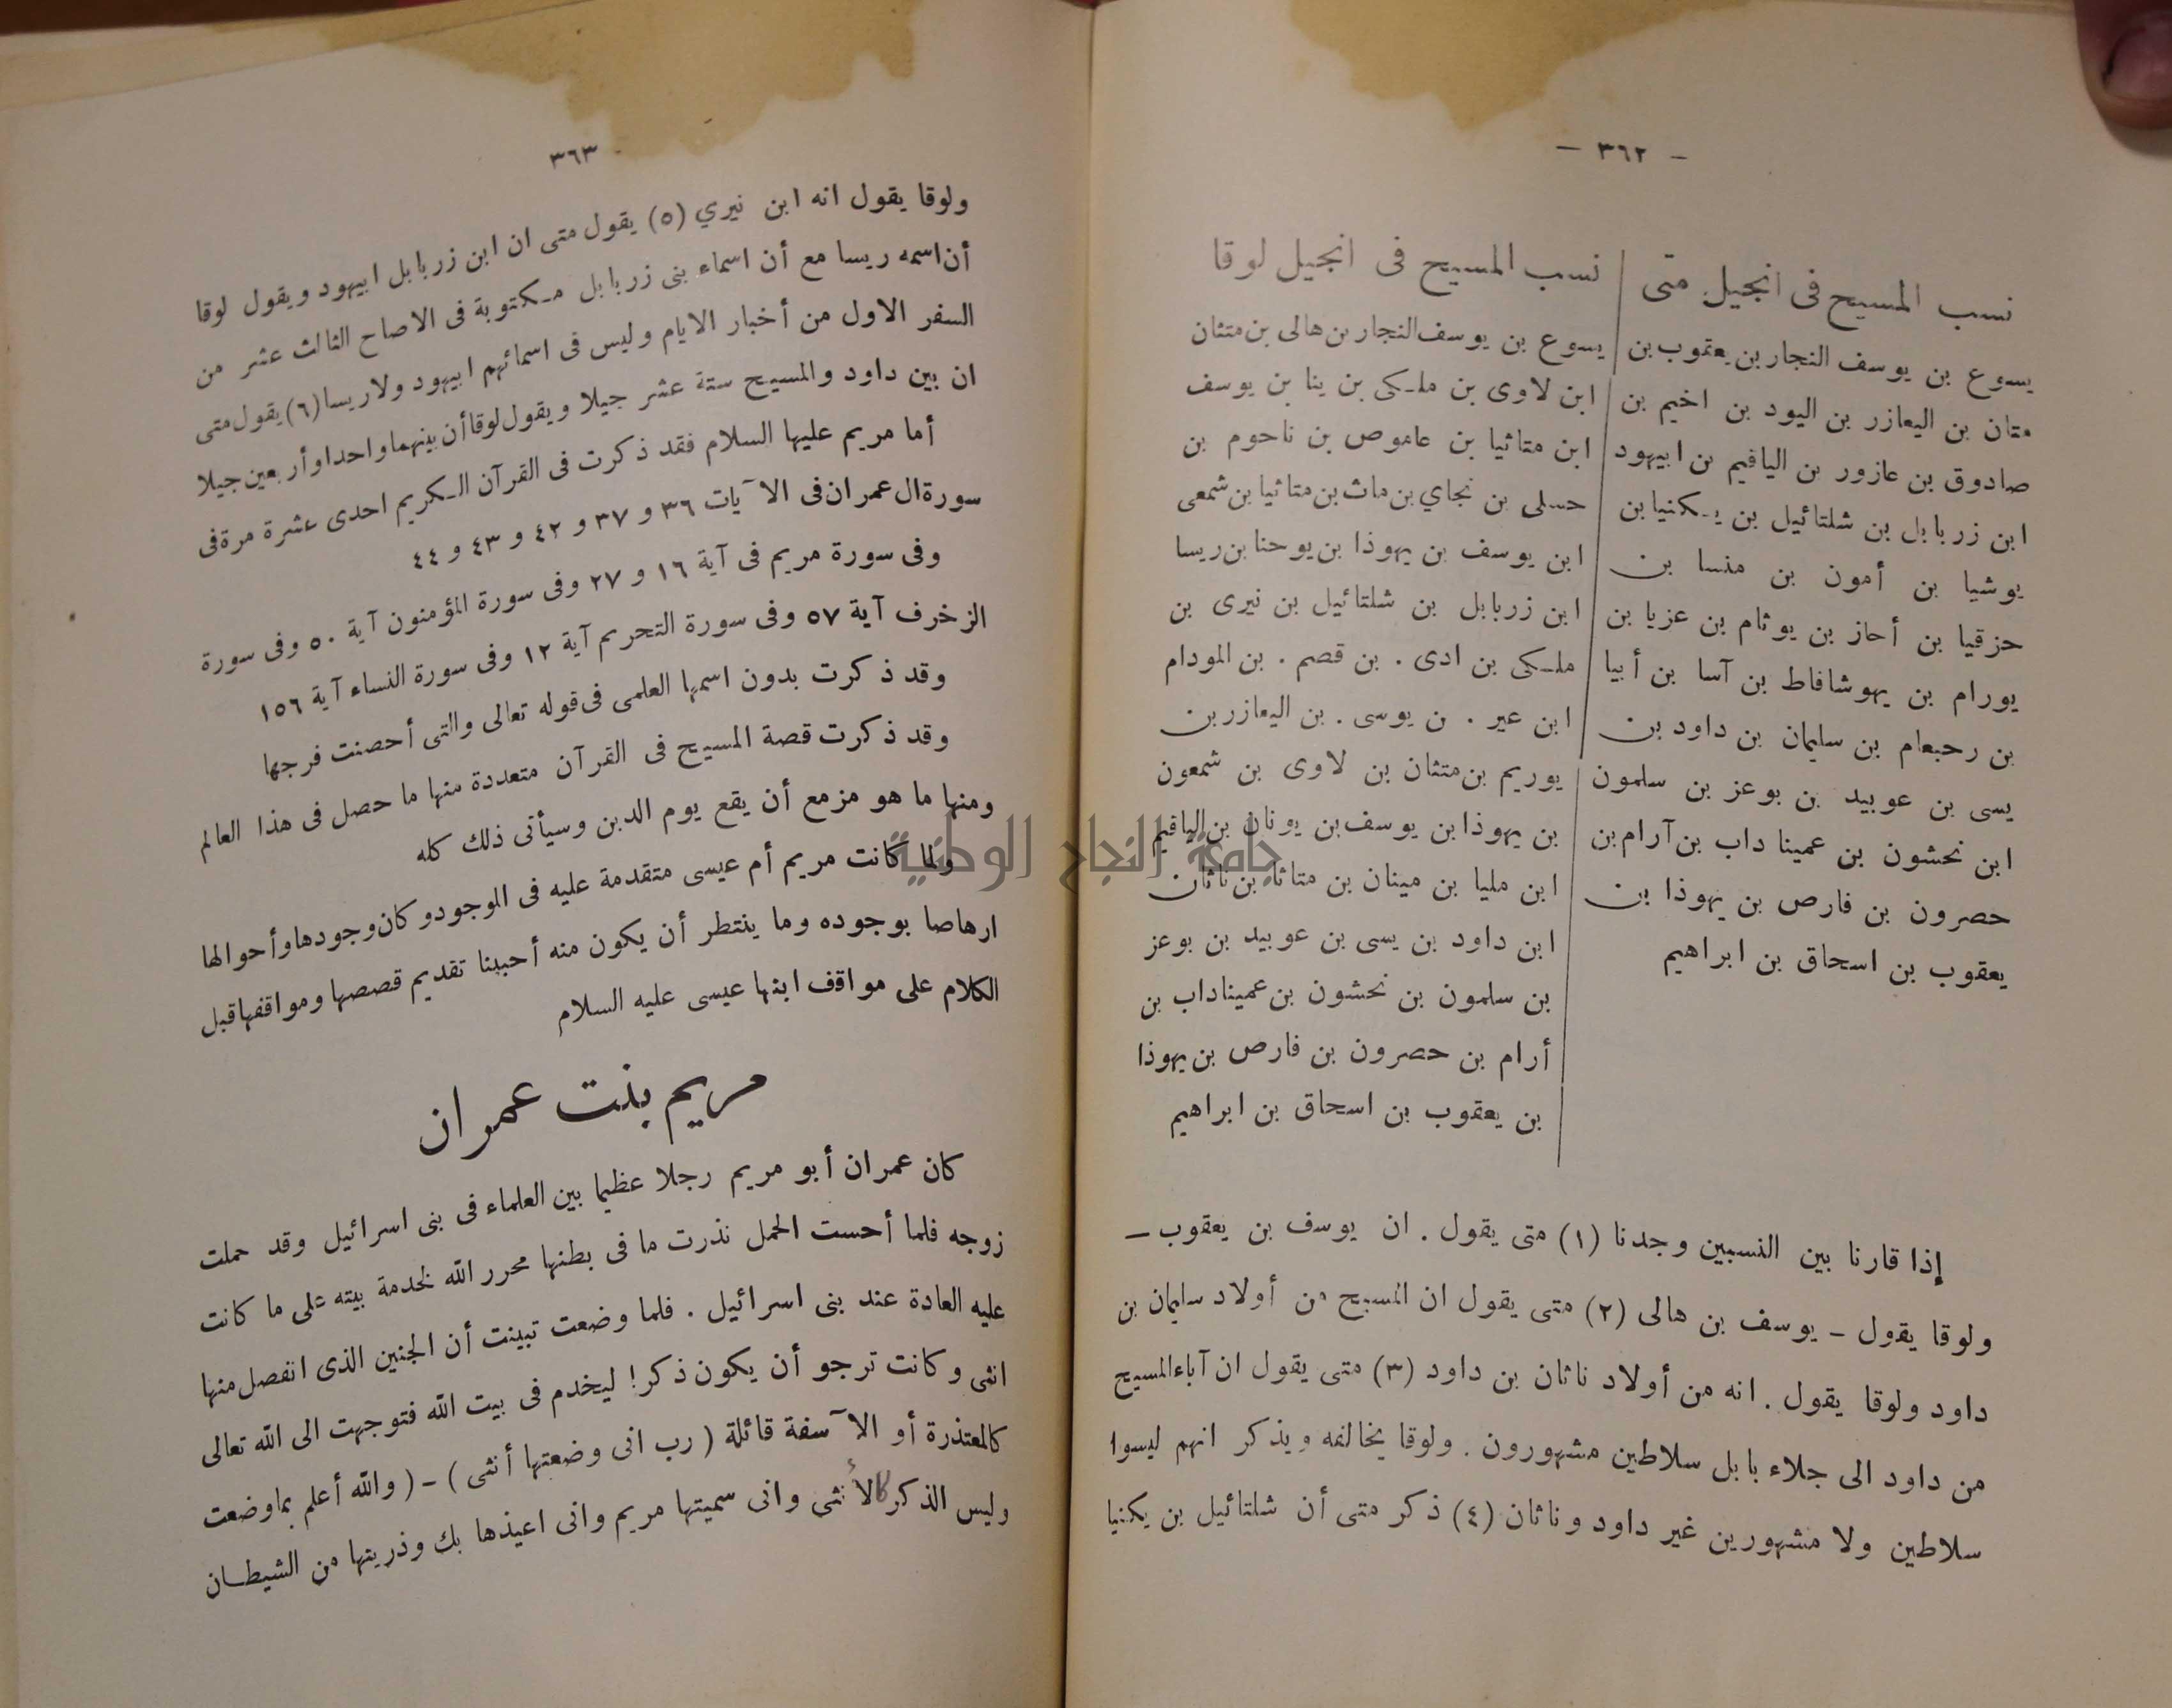 — ٣٦٢ —
نسب المسيح فى انجيل متى
يسوع بن يوسف النجار بن يعقوب بن
متان بن اليعازر بن اليود بن اخيم بن
صادوق بن عازور بن الياقيم بن ابيهود
ابن زربابل بن شلتائيل بن يكنيا بن
يوشيا بن أمون بن منسا بن
حزقيا بن أحاز بن يوثام بن عزيا بن
يورام بن يهوشافاط بن آسا بن أبيا
بن رحبعام بن سليمان بن داود بن
يسى بن عوبيد بن بوعز بن سلمون
ابن نحشون بن عمينا داب بن آرام بن
حصرون بن فارص بن يهوذا بن
يعقوب بن اسحاق بن ابراهيم
نسب المسيح فى انجيل لوقا
يسوع بن يوسف النجار بن هالى بن متثان
ابن لاوى بن ملكى بن ينا بن يوسف
ابن متاثيا بن عاموص بن ناحوم بن
حسلى بن نجاي بن ماث بن متاثيا بن شمعى
ابن يوسف بن يهوذا بن يوحنا بن ريسا
ابن زربابل بن شلتائيل بن نيرى بن
ملكى بن ادى . بن قصم . بن المودام
ابن عير . ن يوسى . بن اليعازر بن
يوريم بن متثان بن لاوى بن شمعون
بن يهوذا بن يوسف بن يونان بن الياقيم
ابن مليا بن مينان بن متاثا بن ناثان
ابن داود بن يسى بن عوبيد بن بوعز
بن سلمون بن نحشون بن عميناداب بن
أرام بن حصرون بن فارص بن يهوذا
بن يعقوب بن اسحاق بن ابراهيم
إذا قارنا بين النسبين وجدنا (١) متى يقول . ان يوسف بن يعقوب —
ولوقا يقول – يوسف بن هالى (٢) متى يقول ان المسيح من أولاد سليمان بن
داود ولوقا يقول . انه من أولاد ناثان بن داود (٣) متى يقول ان آباء المسيح
من داود الى جلاء بابل سلاطين مشهورون . ولوقا يخالفه ويذكر انهم ليسوا
سلاطين ولا مشهورين غير داود وناثان (٤) ذكر متى أن شلتائيل بن يكنيا
- ٣٦٣
ولوقا يقول انه ابن نيري (٥) يقول متى ان ابن زربابل ابيهود ويقول لوقا
أن اسمه ريسا مع أن اسماء بنى زربابل مكتوبة فى الاصاح الثالث عشر من
السفر الاول من أخبار الايام وليس فى اسمائهم ابيهود ولا ريسا (٦) يقول متى
ان بين داود والمسيح ستة عشر جيلا ويقول لوقا أن بينهما واحدا وأربعين جيلا
أما مريم عليها السلام فقد ذكرت فى القرآن الكريم احدى عشرة مرة فى
سورة ال عمران فى الآيات ٣٦ و ٣٧ و ٤٢ و ٤٣ و ٤٤
وفى سورة مريم فى آية ١٦ و ٢٧ وفى سورة المؤمنون آية ٥٠ وفى سورة
الزخرف آية ٥٧ وفى سورة التحريم آية ١٢ وفى سورة النساء آية ١٥٦
وقد ذكرت بدون اسمها العلمى فى قوله تعالى والتى أحصنت فرجها
وقد ذكرت قصة المسيح فى القرآن متعددة منها ما حصل فى هذا العالم
ومنها ما هو مزمع أن يقع يوم الدين وسيأتى ذلك كله
ولما كانت مريم أم عيسى متقدمة عليه فى الوجود وكان وجودها وأحوالها
ارهاصا بوجوده وما ينتظر أن يكون منه أحببنا تقديم قصصها ومواقفها قبل
الكلام على مواقف ابنها عيسى عليه السلام
مريم بنت عمران
كان عمران أبو مريم رجلا عظيما بين العلماء فى بنى اسرائيل وقد حملت
زوجه فلما أحست الحمل نذرت ما فى بطنها محرر الله لخدمة بيته على ما كانت
عليه العادة عند بنى اسرائيل . فلما وضعت تبينت أن الجنين الذى انفصل منها
انثى وكانت ترجو أن يكون ذكرا ليخدم فى بيت الله فتوجهت الى الله تعالى
كالمعتذرة أو الآسفة قائلة ( رب انى وضعتها أنثى ) – ( والله أعلم بما وضعت
وليس الذكر كالأنثى وانى سميتها مريم وانى اعيذها بك وذريتها من الشيطان
جامعة النجاح الوطنية